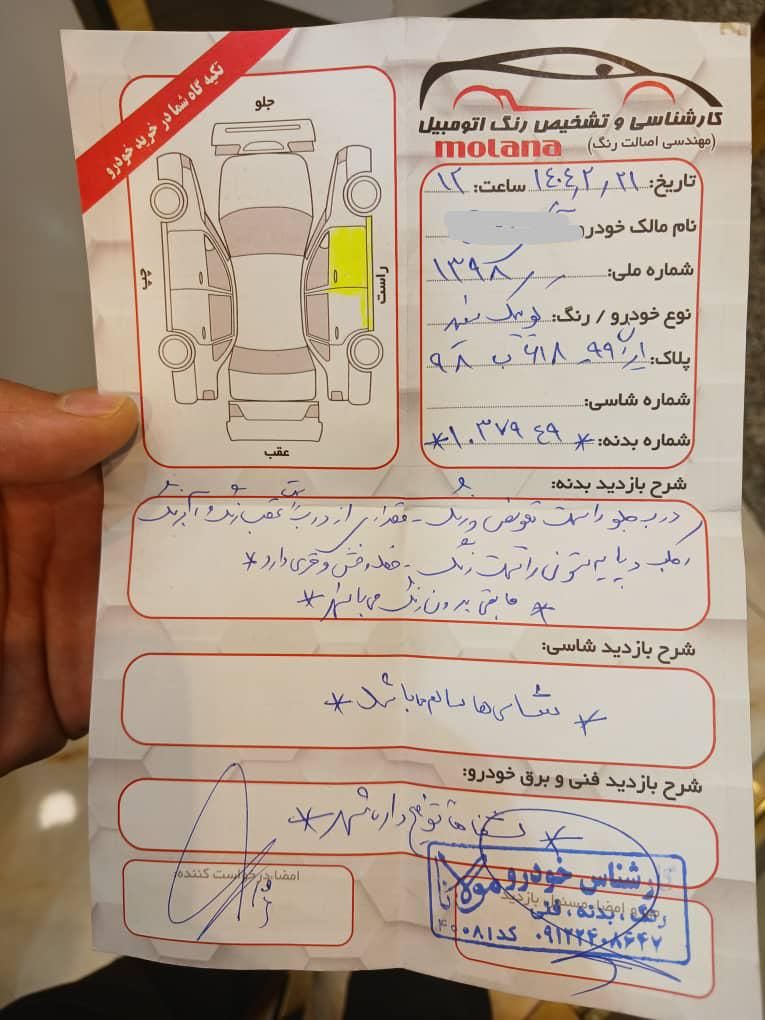 تکیه گاه شما در خرید خودرو
جلو
چپ
راست
عقب
کارشناسی و تشخیص رنگ اتومبیل
(مهندسی اصالت رنگ) molana
تاریخ: ۱۴۰۴٫۲٫۲۱ ساعت: ۱۲
نام مالک خودرو
شماره ملی: ۱۳۹۸
نوع خودرو / رنگ: کوییک سفید
پلاک: ایران ۹۹ ۶۱۸ ب ۹۸
شماره شاسی:
شماره بدنه: * ۱۰۳۷۹۴۹ *
شرح بازدید بدنه:
درب جلو راست تعویض و رنگ - مقداری از درب عقب رنگ و آبرنگ
رکاب و پایه ستونی راست رنگ - خط و خش و قری دارد *
* مابقی بدون رنگ می باشد *
شرح بازدید شاسی:
* شاسی ها سالم می باشد *
شرح بازدید فنی و برق خودرو:
امضا درخواست کننده:
مهر و امضا مسئول بازدید
کارشناس خودرو
مولانا
رنگ، بدنه، فنی
۰۹۱۲۲۴۰۸۶۴۷ کد ۴۰۰۸۱